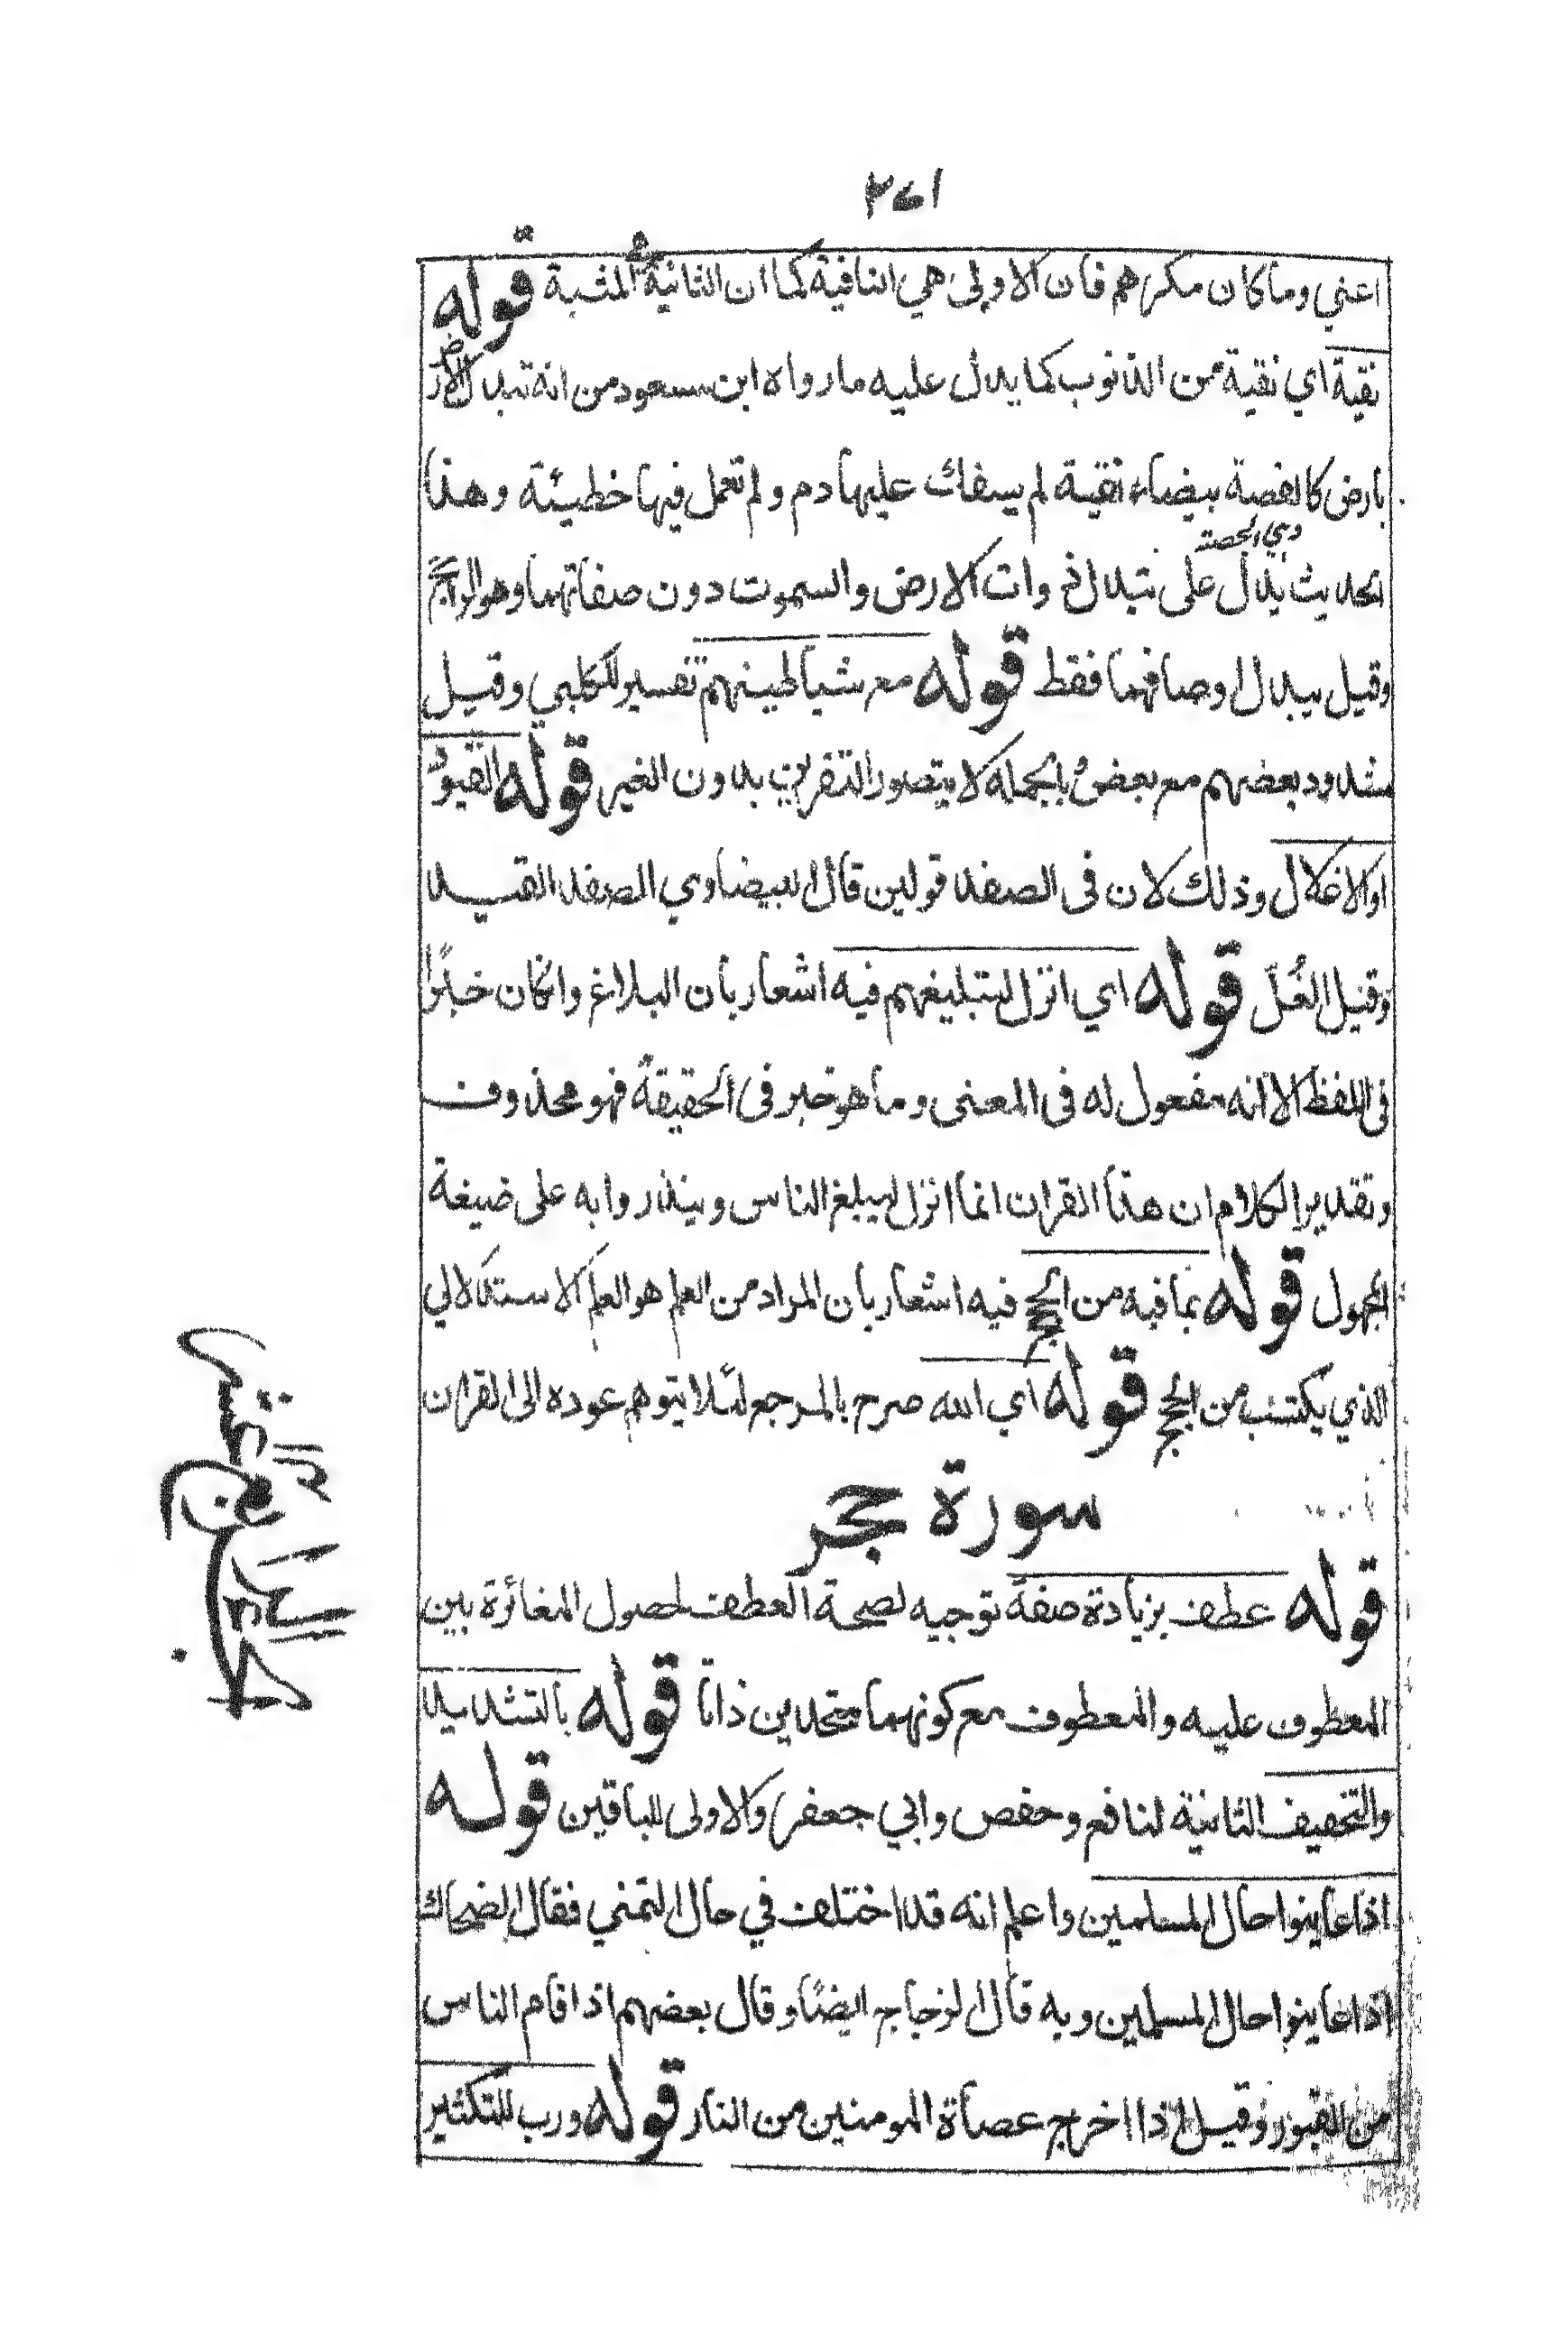 ٢٧١
اعني وما كان مكرهم فان الاولى هي النافية كما ان الثانية هي المثبة قوله
نقية اي نقية من الذنوب كما يدل عليه ما رواه ابن مسعود من انه تبدل الارض
بارض كالفضة بيضاء نقية لم يسفك عليها دم ولم تعمل فيها خطيئة وهذا
الحديث يدل على تبدل ذوات الارض والسموت دون صفاتهما وهو الراجح
وقيل يبدل اوصافهما فقط قوله مع شياطينهم تفسير للكلبي وقيل
مشدود بعضهم مع بعض وبالجملة لا يتصور التقرين بدون الغير قوله القيود
او الاغلال وذلك لان في الصفد قولين قال البيضاوي الصفد القيد
وقيل الغُلّ قوله اي انزل لتبليغهم فيه اشعار بان البلاغ وانكان خبرًا
في اللفظ الا انه مفعول له في المعنى وما هو خبر في الحقيقة فهو محذوف
وتقدير الكلام ان هذا القران انما انزل ليبلغ الناس وينذروا به على صيغة
المجهول قوله بما فيه من الحجج فيه اشعار بان المراد من العلم هو العلم الاستدلالي
الذي يكتسب من الحجج قوله اي الله صرح بالمرجع لئلا يتوهم عوده الى القران
سورة حجر
قوله عطف بزيادة صفة توجيه لصحة العطف لحصول المغائرة بين
المعطوف عليه والمعطوف مع كونهما متحدين ذاتا قوله بالتشديد
والتخفيف الثانية لنافع وحفص وابي جعفر والاولى للباقين قوله
اذا عاينوا حال المسلمين واعلم انه قد اختلف في حال التمني فقال الضحاك
اذا عاينوا حال المسلمين وبه قال الزجاج ايضًا وقال بعضهم اذا قام الناس
من القبور وقيل اذا اخرج عصاة المومنين من النار قوله ورب للتكثير